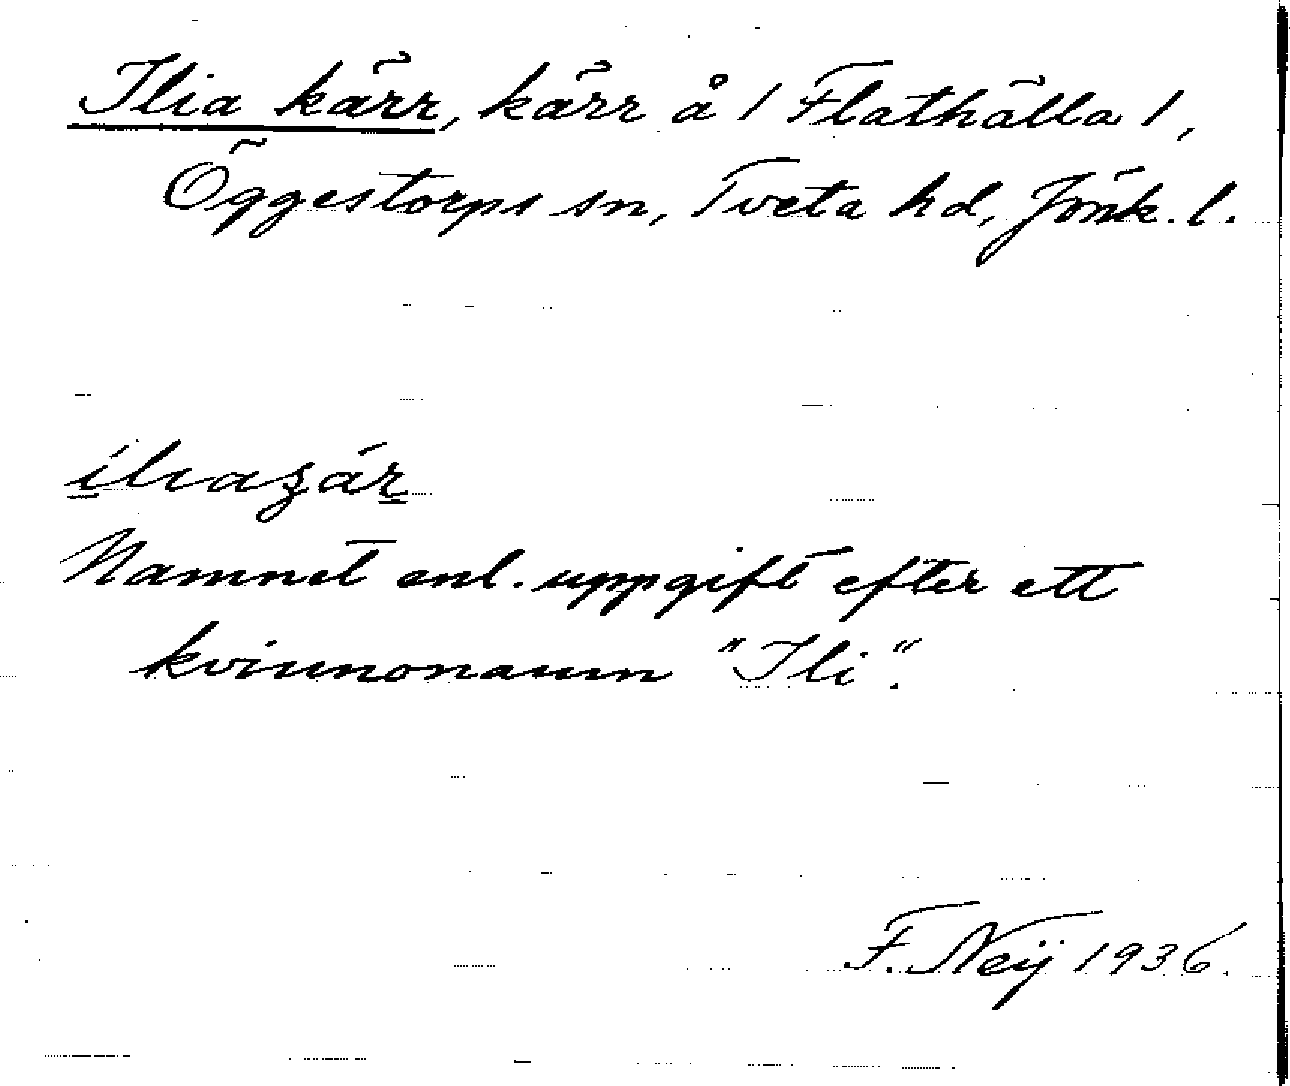 Ilia kärr, kärr å / Flathälla /,
Öggestorps sn, Tveta hd, Jönk. l.
Namnet enl. uppgift efter ett
kvinnonamn "Ili".
F. Neij 1936.